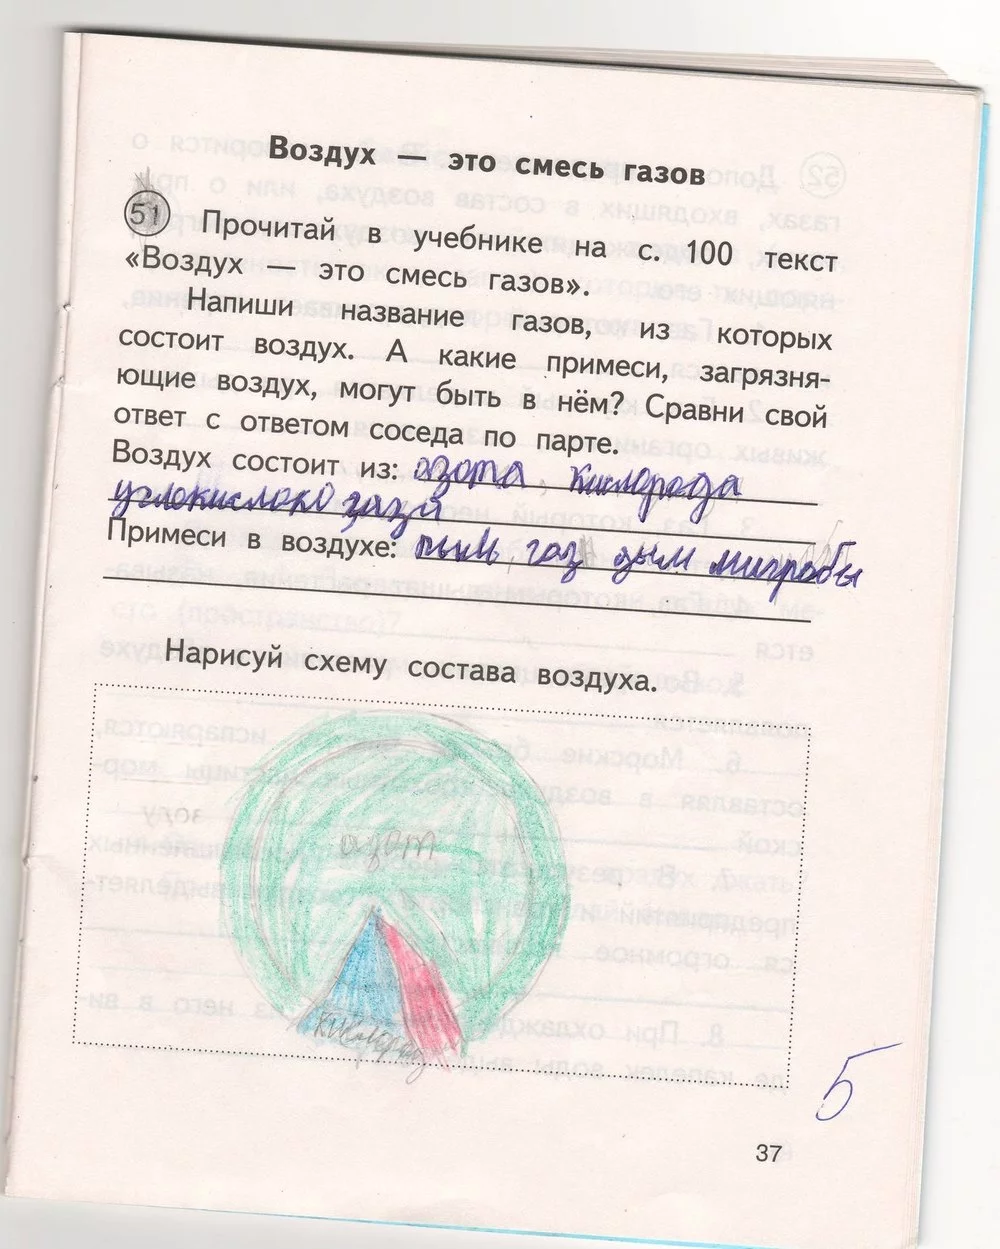 Воздух — это смесь газов
51 Прочитай в учебнике на с. 100 текст
«Воздух — это смесь газов».
Напиши название газов, из которых
состоит воздух. А какие примеси, загрязня-
ющие воздух, могут быть в нём? Сравни свой
ответ с ответом соседа по парте.
Воздух состоит из: азота, Кислорода
углокислоко газа
Примеси в воздухе: пыль, газ дым мигробы
Нарисуй схему состава воздуха.
азот
кислород
5
37